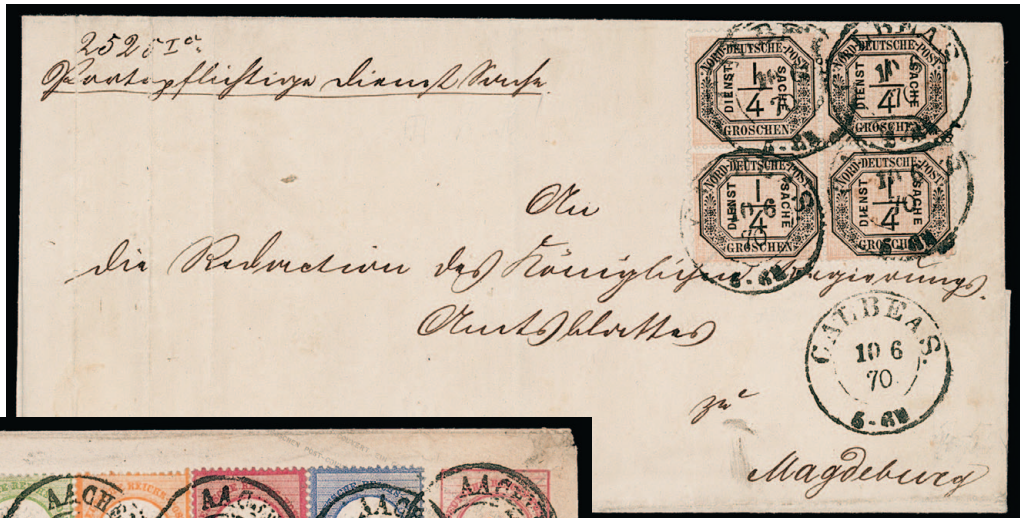 2525 I a.
Portopflichtige Dienst Sache.
NORD-DEUTSCHE-POST
DIENST 1/4 SACHE
GROSCHEN
NORD-DEUTSCHE-POST
DIENST 1/4 SACHE
GROSCHEN
NORD-DEUTSCHE-POST
DIENST 1/4 SACHE
GROSCHEN
NORD-DEUTSCHE-POST
DIENST 1/4 SACHE
GROSCHEN
An
die Redaction des Königlichen Regierungs-
Amtsblattes
CALBE A S.
10 6
70.
zu
Magdeburg
AACH
AACH
AACH
AACH